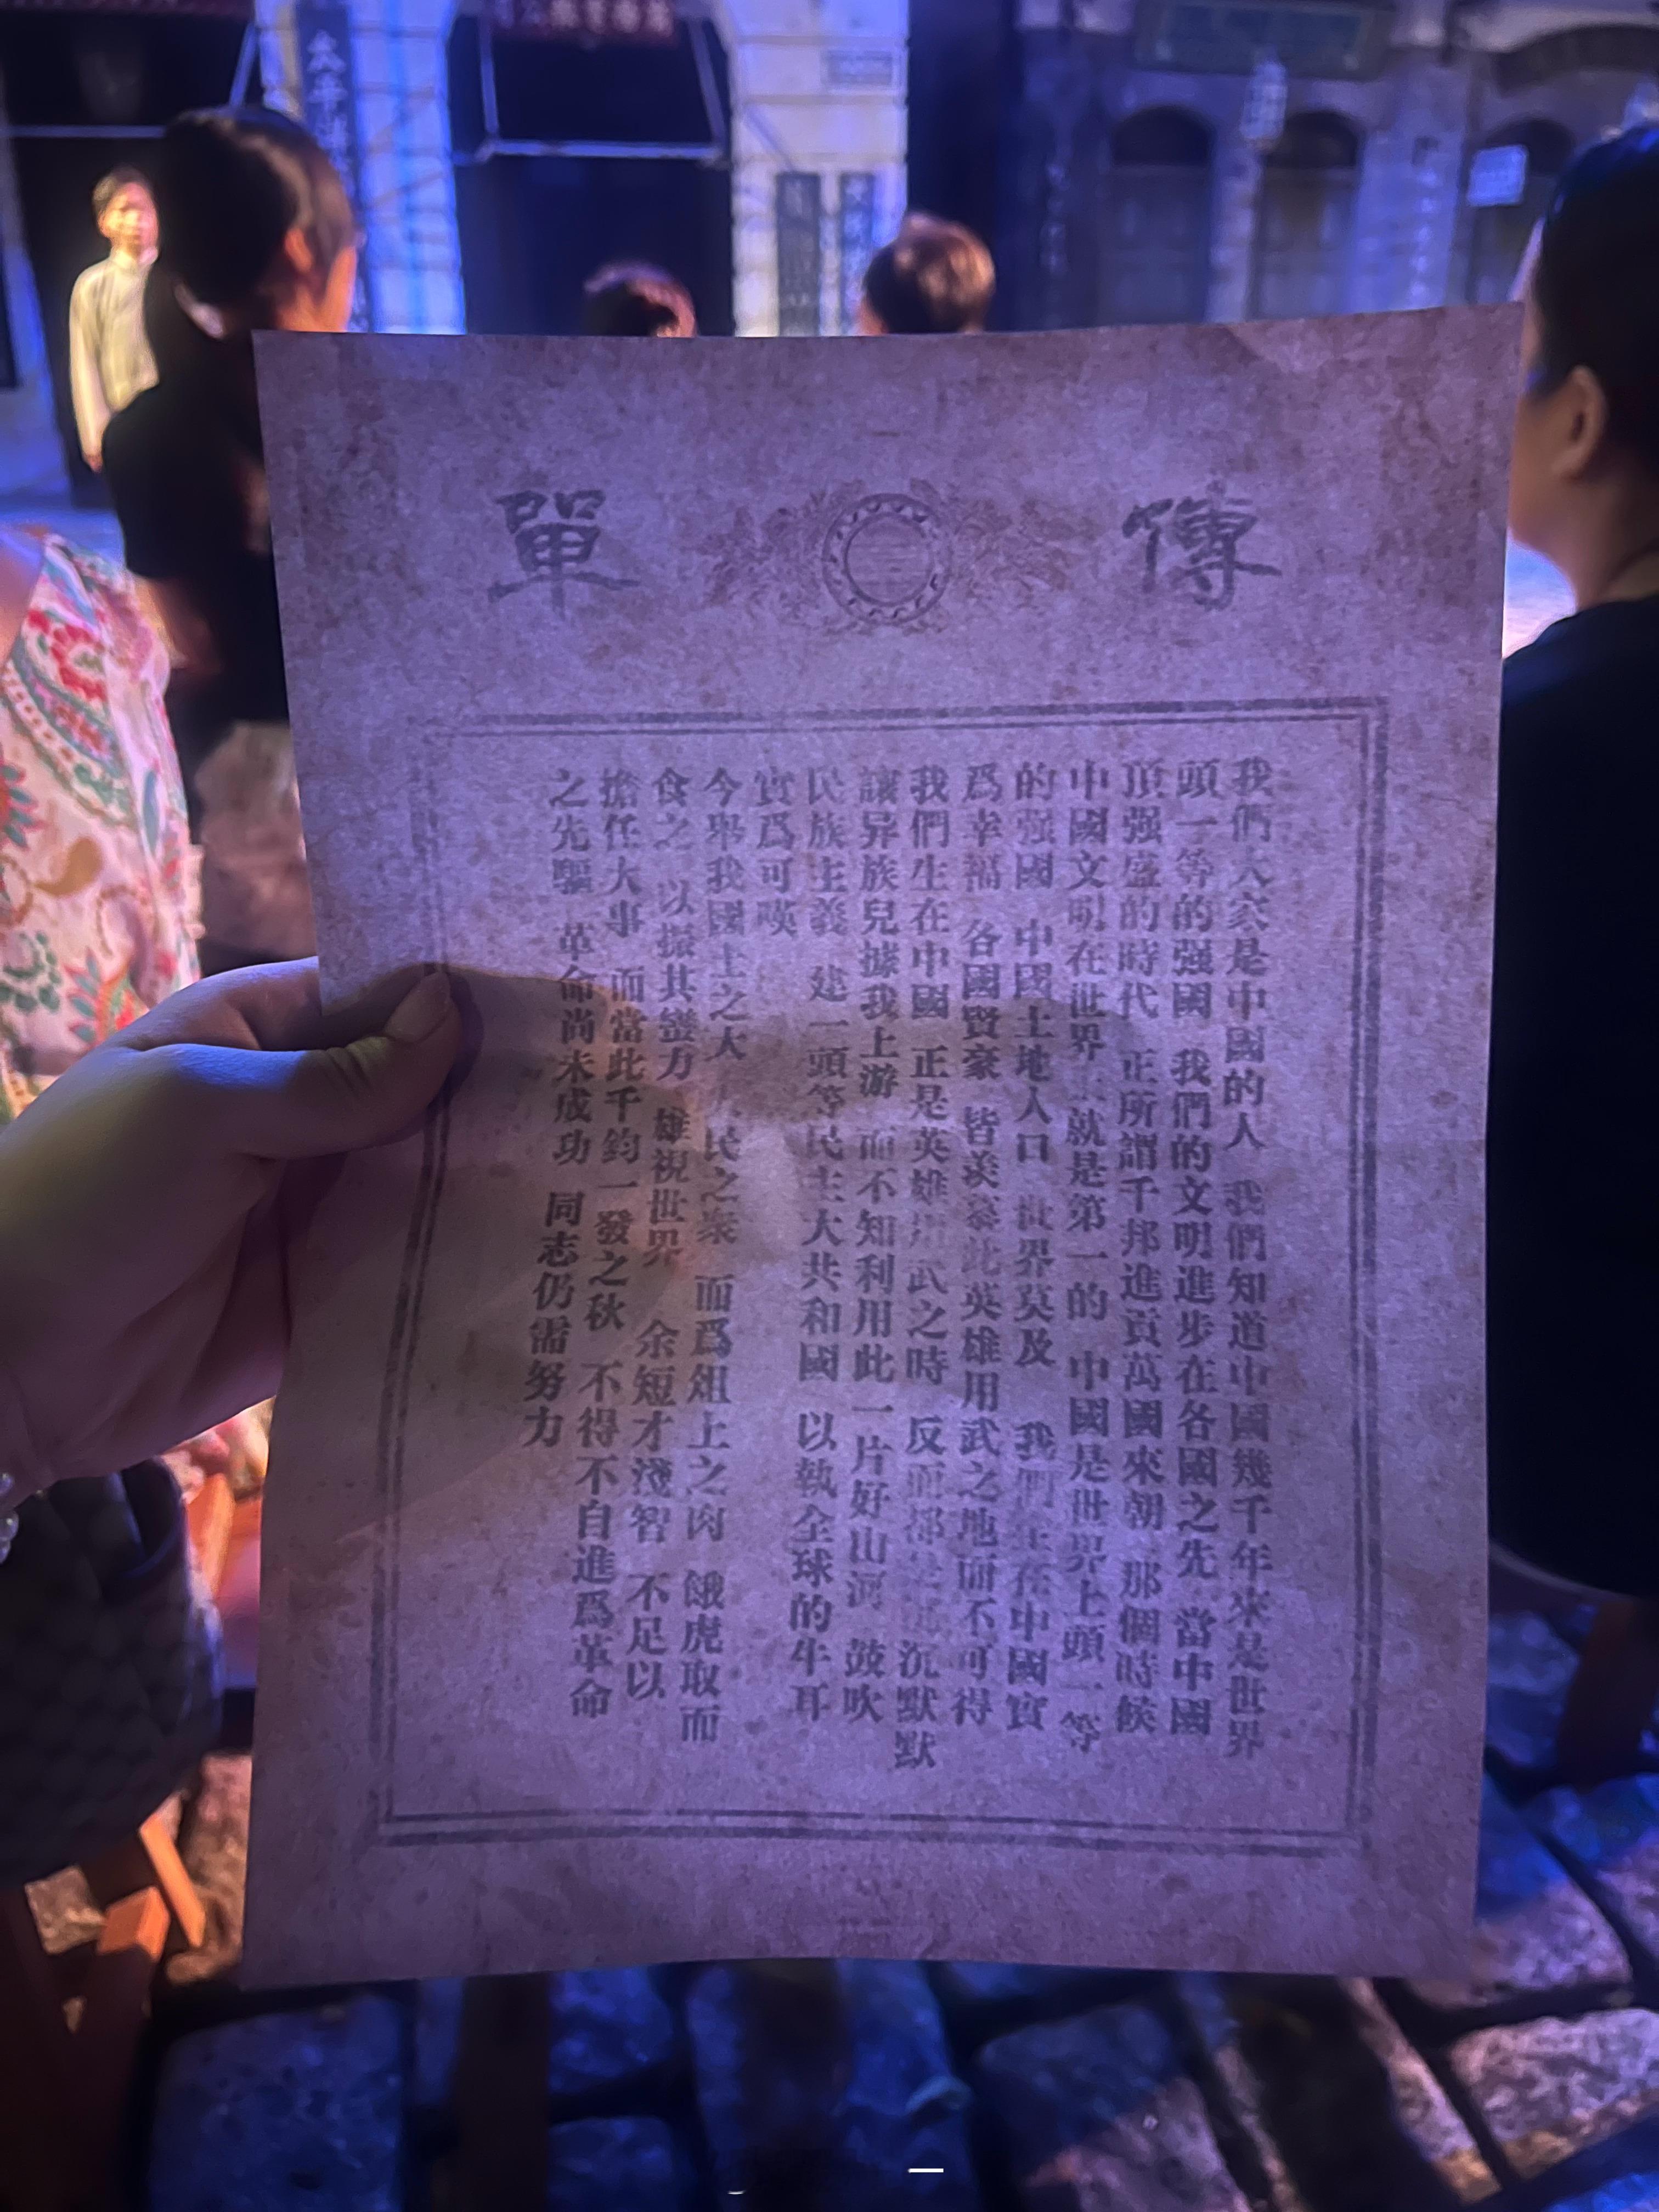 傳單
我們大家是中國的人 我們知道中國幾千年來是世界
頭一等的强國 我們的文明進步在各國之先 當中國
頂强盛的時代 正所謂千邦進貢萬國來朝 那個時候
中國文明在世界上就是第一的 中國是世界上頭一等
的强國 中國土地人口 世界莫及 我們生在中國實
爲幸福 各國賢豪 皆羨慕此英雄用武之地而不可得
我們生在中國 正是英雄用武之時 反而都是 沉默默
讓异族兒據我上游 而不知利用此一片好山河 鼓吹
民族主義 建一頭等民主大共和國 以執全球的牛耳
實爲可嘆
今舉我國土之大 人民之衆 而爲俎上之肉 餓虎取而
食之 以振其蠻力 雄視世界 余短才淺智 不足以
擔任大事 而當此千鈞一發之秋 不得不自進爲革命
之先驅 革命尚未成功 同志仍需努力
太平